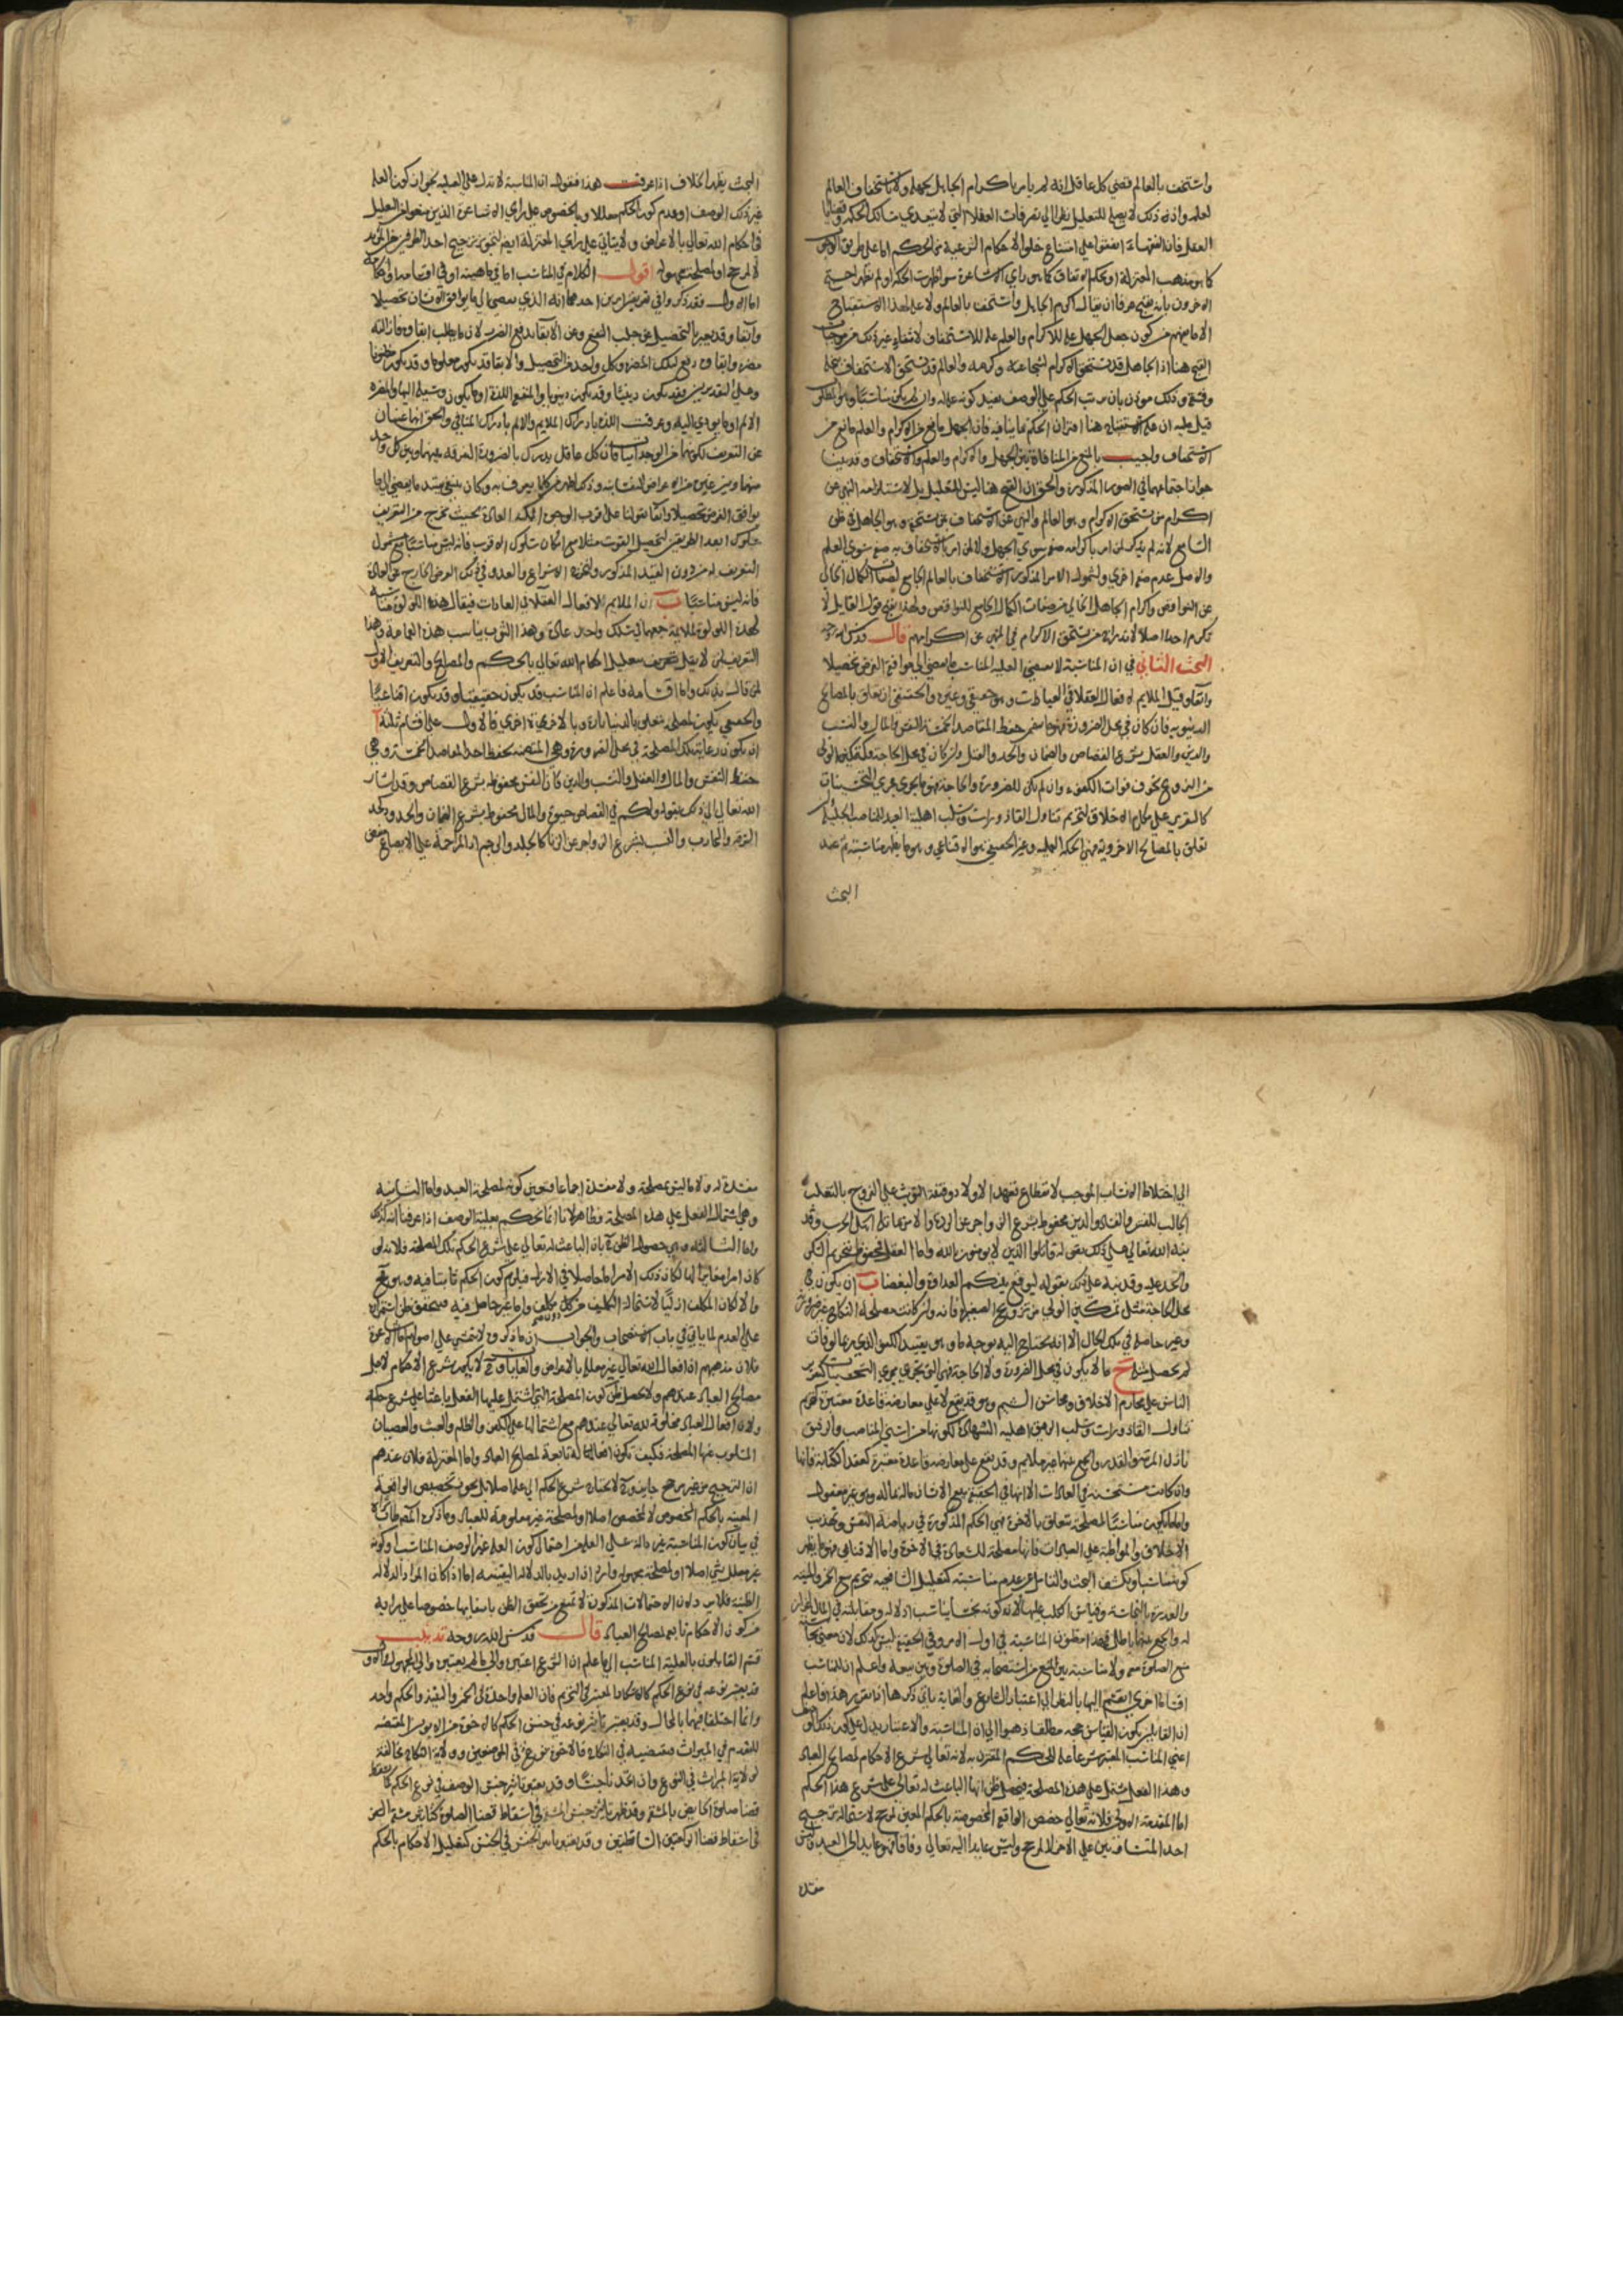 واستخف بالعالم قضى كل عاقل انه لم يامر باكرام الجاهل لجهله ولا باستخفاف العالم
لعلمه واذنه ذلك لا يصلح للتعليل نظرا الى تصرفات العقلاء التي لا يتعدى مسالك الحكمة وقضايا
العقل فان الفقهاء اتفقوا على امتناع خلو الاحكام الشرعية عن الحكم اما على طريق الوجوب
كما هو مذهب المعتزلة او بحكم الاتفاق كما هو راي الاشاعرة سوا ظهرت الحكمة او لم تظهر احتج
الاخرون بانه يقبح عرفا ان يقال اكرم الجاهل واستخف بالعالم ولا علة لهذا الاستقباح
الا ما فهم من كون جعل الجهل علة للاكرام والعلم علة للاستخفاف لانتفاء غير ذلك من موجبات
القبح هنا اذ الجاهل قد يستحق الاكرام لشجاعته وكرمه والعالم قد يستحق الاستخفاف لبخله
وفسقه وذلك موذن بان ترتب الحكم على الوصف يفيد كونه علة وان لم يكن مناسبا وهو المطلوب
قيل عليه ان علة الاستقباح هنا اقتران الحكم بما ينافيه فان الجهل مانع من الاكرام والعلم مانع من
الاستخفاف واجيب بالمنع من المنافاة بين الجهل والاكرام والعلم والاستخفاف وقد بينا
جواز اجتماعهما في الصورة المذكورة والحق ان القبح هنا ليس للتعليل بل لاستلزامه النهي عن
اكرام من يستحق الاكرام وهو العالم والنهي عن الاستخفاف بمن يستحقه وهو الجاهل في ظن
السامع لانه لم يذكر لمن امر باكرامه صفة سوى الجهل ولا لمن امر بالاستخفاف به صفة سوى العلم
والاصل عدم صفة اخرى ولشمول الامر المذكور الاستخفاف بالعالم الجامع لصفات الكمال الخالي
عن النواقص واكرام الجاهل الخالي من صفات الكمال الجامع للنواقص ولهذا يقبح قول القايل لا
تكرم احدا اصلا لاندراج من يستحق الاكرام في النهي عن اكرامهم قال قدس الله روحه
البحث الثاني في ان المناسبة لا تقتضي العلية المناسب ما يفضي الى ما يوافق الغرض تحصيلا
وابقاء وقيل الملايم لافعال العقلاء في العادات وهو حقيقي وغيره والحقيقي ان تعلق بالمصالح
الدنيوية فان كان في محل الضرورة فهو ما يتضمن حفظ المقاصد الخمسة النفس والمال والنسب
والدين والعقل بشرع القصاص والضمان والحد والقتل وان كان في محل الحاجة فكتمكين الولى
من التزويج لخوف فوات الكفوء وان لم تكن للضرورة والحاجة فهو ما يجري مجرى التحسينات
كالتقرير على مكارم الاخلاق كتحريم تناول القاذورات وسلب اهلية العبد للمناصب الجليلة وان
تعلق بالمصالح الاخروية فهي الحكمة العملية وغير الحقيقي هو الاقناعي وهو ما يظهر مناسبته ثم عند
البحث
البحث يظهر الخلاف اذا عرفت هذا فنقول ان المناسبة لا تدل على العلية لجواز كون العلة
غير ذلك الوصف او عدم كون الحكم معللا وبالخصوص على راي الاشاعرة الذين منعوا من التعليل
في احكام الله تعالى بالاغراض ولا يتاتى على راي المعتزلة ايضا لتجويزهم ترجيح احد الطرفين من المريد
لا لمرجح او لمصلحة مجهولة اقول الكلام في المناسب اما في ماهيته او في اقسامه او في احكامه
اما الاول فقد ذكروا في تعريفه امرين احدهما انه الذي يفضي الى ما يوافق الانسان تحصيلا
وابقاء وقد يعبر بالتحصيل عن جلب النفع وعن الابقاء بدفع الضرر لان ما يطلب ابقاوه فازالته
مضرة وابقاوه دفع لتلك المضرة وكل واحد من التحصيل والابقاء قد يكون معلوما وقد يكون مظنونا
وعلى التقديرين فقد يكون دينيا وقد يكون دنيويا والمنفعة اللذة او ما يكون وسيلة اليها والمضرة
الالم او ما يودي اليه وعرفت اللذة بادراك الملايم والالم بادراك المنافي والحق انهما غنيان
عن التعريف لكونهما من الوجدانيات فان كل عاقل يدرك بالضرورة التفرقة بينهما وبين كل واحد
منهما وبين غيره من الاعراض النفسانية وذلك اظهر من كل ما يعرف به وكان ينبغي تقييد ما يفضي الى ما
يوافق الغرض تحصيلا وابقاء بقولنا على قرب الوجه
التعريف له من دون القيد المذكور
فانه ليس مناسبا ب ان الملايم لافعال العقلاء في العادات فيقال هذه اللولوة مناسبة
لهذه اللولوة لملايمة جمعهما في سلك واحد عادة وهذا الثوب يناسب هذه العمامة وهذا
التعريف لمن لا يقبل تعليل احكام الله تعالى بالحكم والمصالح والتعريف الاول
لمن قال بذلك واما اقسامه فاعلم ان المناسب قد يكون حقيقيا وقد يكون اقناعيا
والحقيقي يكون لمصلحة تتعلق بالدنيا تارة وبالاخرى اخرى فالاول على اقسام ثلثة ا
ان يكون رعاية تلك المصلحة في محل الضرورة وهي المتضمنة لحفظ احد المقاصد الخمسة وهي
حفظ النفس والمال والعقل والنسب والدين فان النفس محفوظة بشرع القصاص وقد اشار
الله تعالى الى ذلك بقوله ولكم في القصاص حيوة والمال محفوظ بشرع الضمان والحدود كحد
السرقة والمحارب والنسب بشرع الزواجر عن الزنا كالجلد والرجم اذ المزاحمة على الابضاع تفضي
الى اختلاط الانساب الموجب لانقطاع تعهد الاولاد وفيه التوثب على الفروج بالتغلب
الجالب للفتن والفساد والدين محفوظ بشرع الزواجر عن الردة والامر بمقاتلة اهل الحرب وقد
نبه الله تعالى على ذلك بقوله قاتلوا الذين لا يومنون بالله واما العقل فمحفوظ بتحريم السكر
والحد عليه وقد نبه على ذلك بقوله ليوقع بينكم العداوة والبغضا ب ان يكون في
محل الحاجة مثل تمكين الولي من تزويج الصغيرة فانه وان كانت مصلحة النكاح غير ضرورية
وغير حاصلة في تلك الحال الا انه يحتاج اليه بوجه ما وهو تقييد الكفو الذي ربما لو فات
لم يحصل مثله ج ما لا يكون في محل الضرورة ولا الحاجة فهي التي تجري مجرى التحسينات كتقرير
الناس على مكارم الاخلاق ومحاسن الشيم وهو قد يقع لا على معارضة قاعدة معتبرة كتحريم
تناول القاذورات وسلب الرقيق اهلية الشهادة لكونها من اسنى المناصب والرقيق
نازل المرتبة والقدر والجمع بينهما غير ملايم وقد يقع على معارضة قاعدة معتبرة كعقد الكتابة فانها
وان كانت مستحسنة في العادات الا انها في الحقيقة بيع الانسان ماله بماله وهو غير معقول
واما ما يكون مناسبا لمصلحة تتعلق بالاخرة فهي الحكم المذكورة في رياضة النفس وتهذيب
الاخلاق والمواظبة على العبادات فانها مصلحة للسعادة في الاخرة واما الاقناعي فهو ما يظهر
كونه مناسبا ويكشف البحث والتامل عن عدم مناسبته كتعليل الشافعية تحريم بيع الخمر والميتة
والعذرة بالنجاسة وقياس الكلب عليها لان كونه نجسا يناسب اذلاله ومقابلته في المال اعزاز
له والجمع بينهما باطل فهذا مظنون المناسبة في اول الامر وفي الحقيقة ليس كذلك لان معنى نجاسته
منع الصلوة معه ولا مناسبة بين المنع من استصحابه في الصلوة وبين بيعه واعلم ان المناسب
اقساما اخر ينقسم اليها بالنظر الى اعتبار الشارع والغاية ياتي ذكرها اذا تقرر هذا فاعلم
ان القايلين بكون القياس حجة مطلقا ذهبوا الى ان المناسبة والاعتبار يدل على كون ذلك الوصف
اعني المناسب المعتبر شرعا علة للحكم المقترن به لانه تعالى شرع الاحكام لمصالح العباد
وهذا الفعل مشتمل على هذه المصلحة فيحصل ظن انها الباعث له تعالى على شرع هذا الحكم
اما المقدمة الاولى فلانه تعالى خصص الواقعة المخصوصة بالحكم المعين لمرجح لاستحالة ترجيح
احد المتساويين على الاخر لا لمرجح وليس عايدا اليه تعالى وفاقا فهو عايد الى العبد وليس
مفسدة
مفسدة له ولا ما ليس بمصلحة ولا مفسدة اجماعا فتعين كونه لمصلحة العبد واما الثانية
وهي اشتمال الفعل على هذه المصلحة فظاهر لانا انما نحكم بعلية الوصف اذا عرفنا انه كذلك
واما الثالثة وهي حصول الظن بان الباعث له تعالى على شرع الحكم تلك المصلحة فلانه لو
كان امرا مغايرا لها لكان ذلك الامر اما حاصلا في الازل فيلزم كون الحكم ثابتا فيه وهو قبيح
والا لكان المكلف ازليا لاستحالة التكليف من دون مكلف واما غير حاصل فيه فيتحقق ظن استمراره
على العدم لما ياتي في باب الاستصحاب والجواب ان ما ذكروه لا يتمشى على اصولهم اما الاشاعرة
فلان مذهبهم ان افعال الله تعالى غير معللة بالاغراض والغايات فلا يكون شرع الاحكام لاجل
مصالح العباد عندهم ولا يحصل ظن كون المصلحة التي اشتمل عليها الفعل باعثا على شرع حكمه
ولان افعال العباد مخلوقة لله تعالى عندهم مع اشتمالها على الكفر والظلم والعبث والعصيان
المسلوب عنها المصلحة فكيف تكون افعاله تابعة لمصالح العباد واما المعتزلة فلان عندهم
ان الترجيح من غير مرجح جايز فلا يحتاج شرع الحكم الى علة اصلا بل يجوز تخصيص الواقعة
المعينة بالحكم المخصوص لا لمخصص اصلا او لمصلحة غير معلومة للعباد وما ذكره المصنف طاب ثراه
في بيان كون المناسبة غير دالة على العلية من احتمال كون العلة غير الوصف المناسب او كونه
غير معلل بشي اصلا او لمصلحة مجهولة وارد اذا اريد بالدلالة اليقينية اما اذا كان المراد الدلالة
الظنية فلا لان الاحتمالات المذكورة لا تمنع من تحقق الظن باسبابها خصوصا على رايه
من كون الاحكام تابعة لمصالح العباد قال قدس الله روحه تذنيب
قسم القايلون بالعلية المناسب الى ما علم ان الشرع اعتبره والى ما لم يعتبره والى المجهول والاول
قد يعتبر نوعه في نوع الحكم كالاسكار المعتبر في التحريم فان العلة واحدة في الخمر والنبيذ والحكم واحد
وانما اختلفا فيهما بالمحال وقد يعتبر تاثير نوعه في جنس الحكم كالاخوة من الابوين المقتضية
للتقدم في الميراث فتقتضيه في النكاح فالاخوة نوع في الموضعين وولاية النكاح مخالفة
لولاية الميراث في النوع وان اتحدا جنسا وقد يعتبر تاثير جنس الوصف في نوع الحكم كاسقاط
قضا صلوة الحايض بالمشقة وقد ظهر تاثير جنس المشقة في اسقاط قضا الصلوة كتاثير مشقة السفر
في اسقاط قضا الركعتين الساقطتين وقد يعتبر تاثير الجنس في الجنس كتعليل الاحكام بالحكم